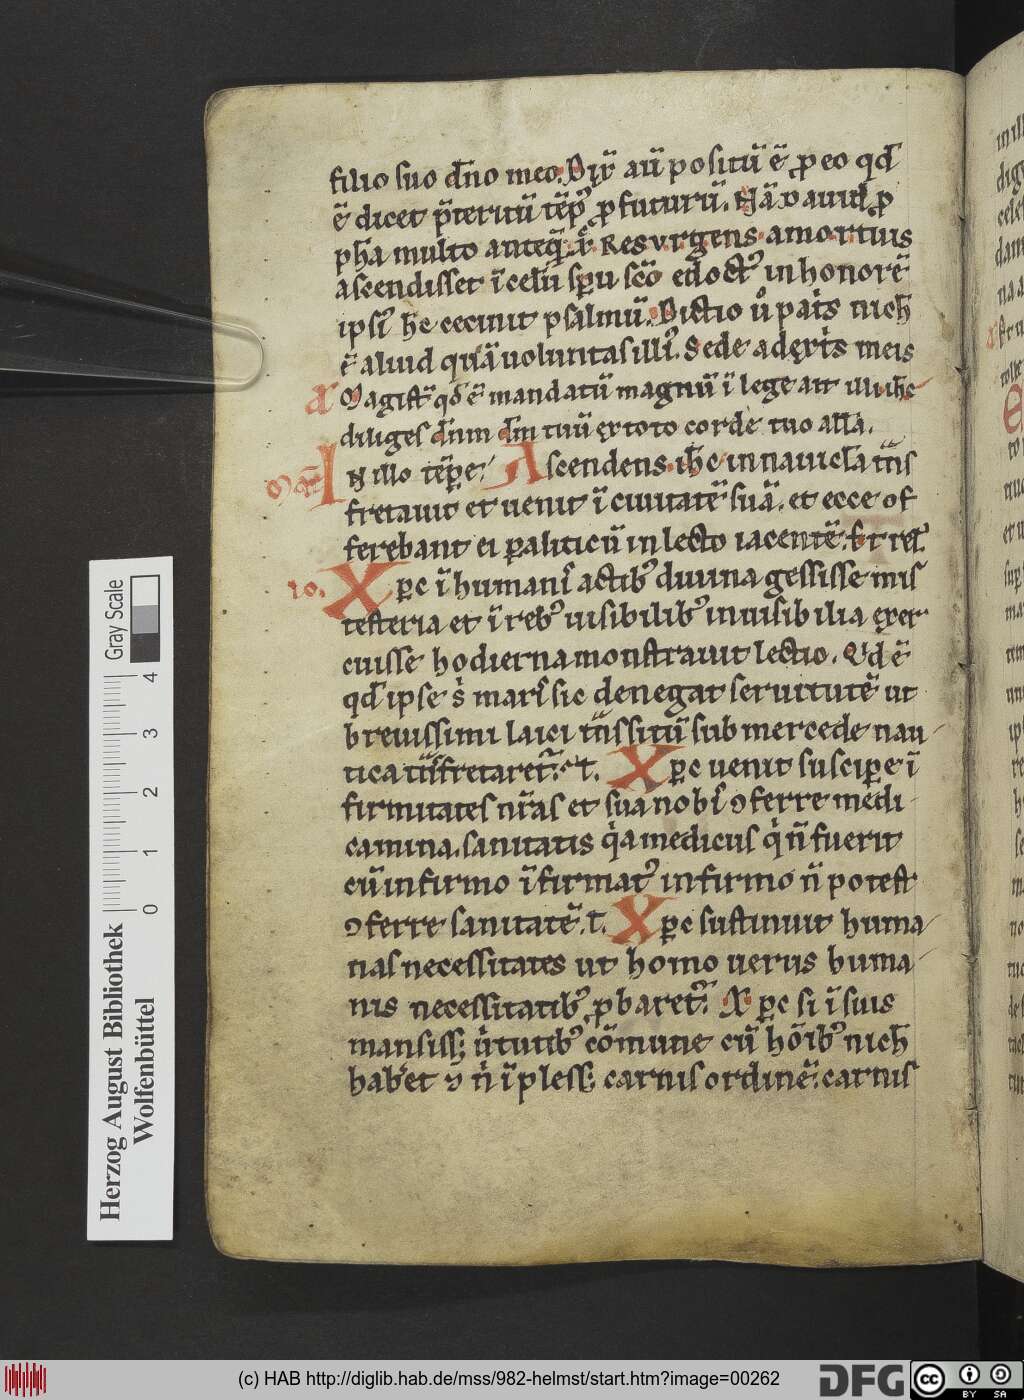 filio suo dn̄o meo. Dix̄ aū positū ē ꝓ eo qd̄
ē dicet p̄teritū tēp̄ ꝓ futurū. Nā dauid ꝓ
ph̄a multo anteq̄ xp̄c Resurgens a mortuis
ascendisset ī celū sp̄u sc̄o edoctꝰ in honorē
ipsiꝰ hc̄ cecinit psalmū. Dictio u̾ pat͛s nich̄
ē aliud quā uoluntas illiꝰ. Sede a dext͛s meis
a Magist̄ qd̄ ē mandatū magnū ī lege ait illi ih̄c
diliges dn̄m dm̄ tuū ex toto corde tuo all̄a.
In illo tēꝑe. Ascendens ih̄c in nauicl̄a tn̄s
fretauit et uenit ī ciuitatē suā. et ecce of
ferebant ei ꝑaliticū in lecto iacentē. Et rel̄.
Xp̄c ī humanis actibꝰ diuina gessisse mis
teria et ī rebꝰ uisibilibꝰ inuisibilia exer
cuisse hodierna monstrauit lectio. Qd ē
qd̄ ipse s̉ maris sic denegat seruitutē ut
breuissimi laici tn̄ssitū sub mercede nau
tica tn̄sfretaret. t. Xp̄c uenit suscipe ī
firmitates nr̄as et sua nobis ꝯferre medi
camina. sanitatis q̉a medicus q̉ n̄ fuerit
cū infirmo ī firmatꝰ infirmo n̄ potest
ꝯferre sanitatē. t. Xp̄c sustinuit huma
nas necessitates ut homo uerus huma
nis necessitatibꝰ ꝓbaret. Xp̄c si ī suis
mansiss; u̾tutibꝰ cōmune cū hōībꝰ nich̄
hab̄et ꝫ n̉ īpless; carnis ordinē. carnis
Gray Scale
0 1 2 3 4
Herzog August Bibliothek
Wolfenbüttel
(c) HAB http://diglib.hab.de/mss/982-helmst/start.htm?image=00262
DFG
cc BY SA